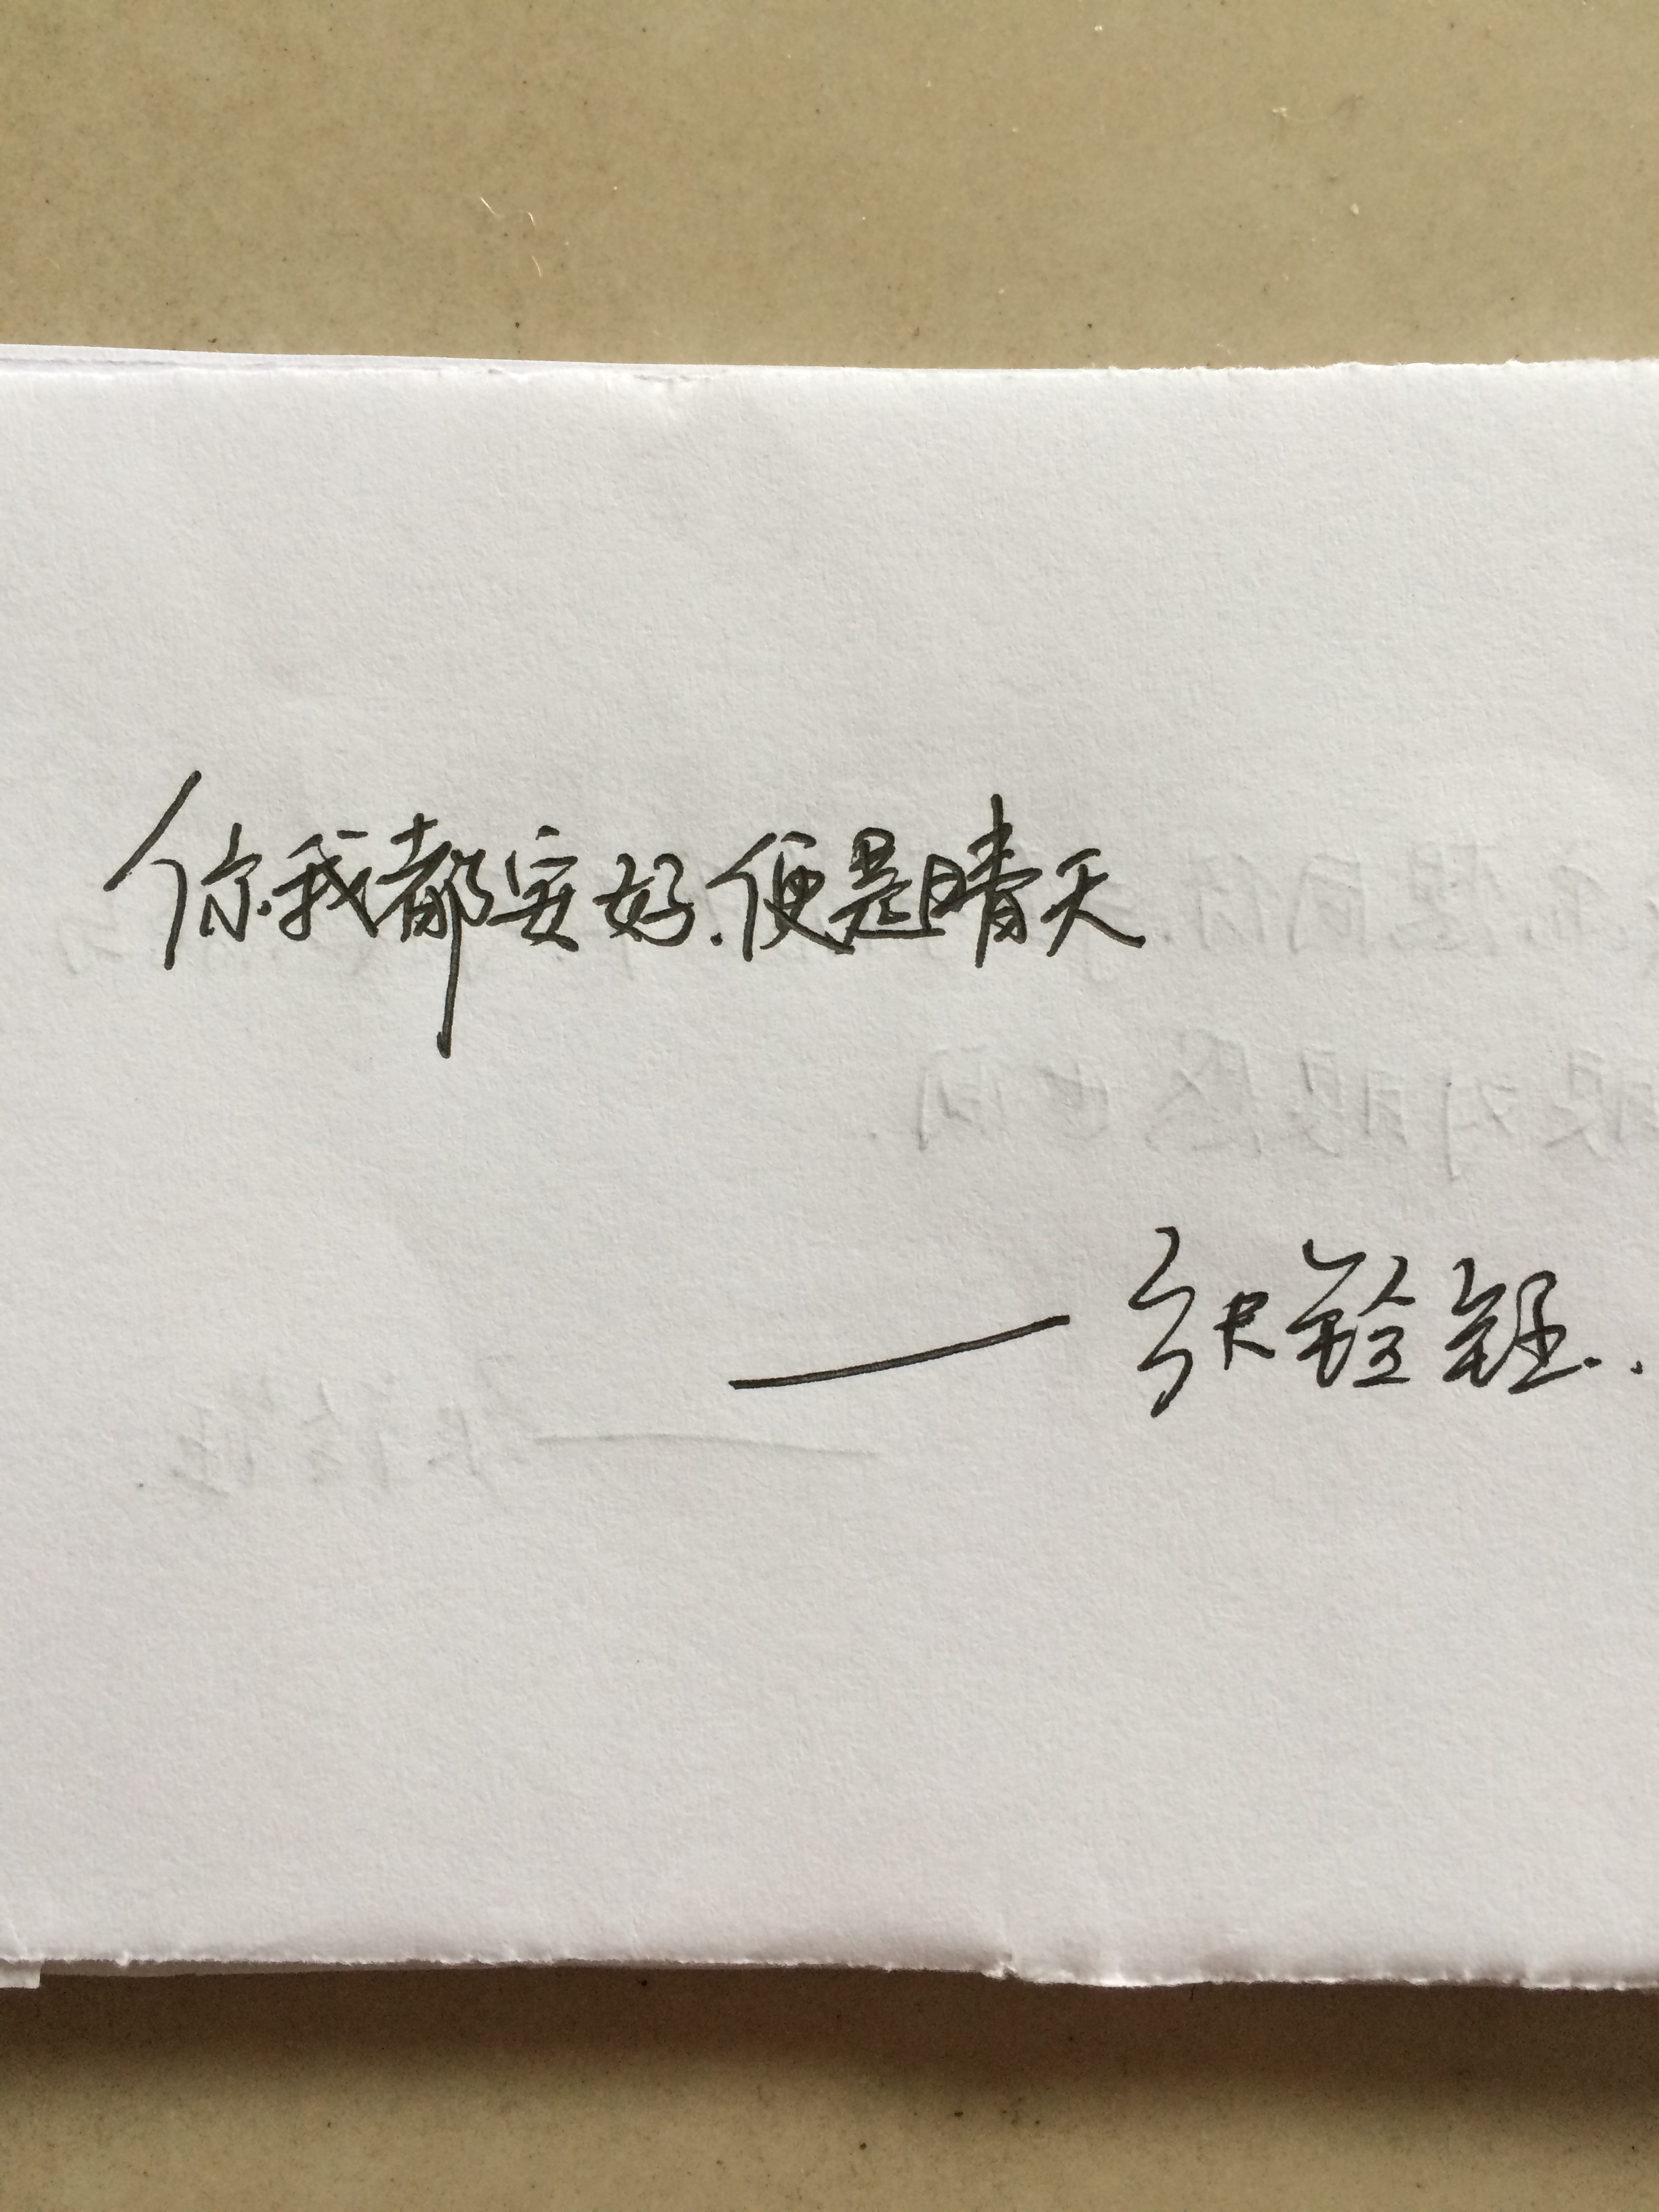 你我都安好.便是晴天
——张铨钰..